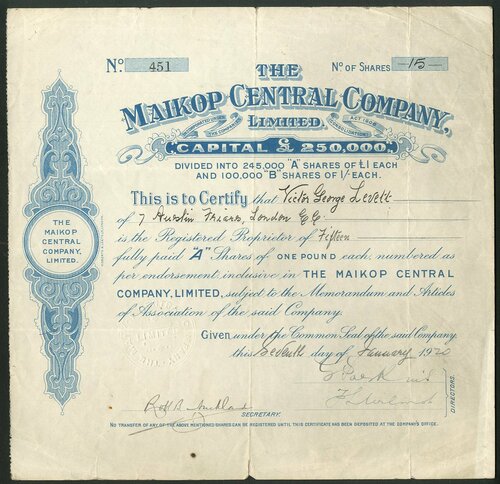 No. 451
No OF SHARES 15
THE
MAIKOP CENTRAL COMPANY,
LIMITED.
CAPITAL £250,000.
DIVIDED INTO 245,000 "A" SHARES OF £1 EACH
AND 100,000 "B" SHARES OF 1/- EACH.
This is to Certify that Victor George Levett
of 7 Austin Friars, London E.C.
is the Registered Proprietor of Fifteen
fully paid "A" Shares of ONE POUND each, numbered as
per endorsement, inclusive in THE MAIKOP CENTRAL
COMPANY, LIMITED, subject to the Memorandum and Articles
of Association of the said Company.
Given under the Common Seal of the said Company
this Seventh day of January 1920
THE
MAIKOP
CENTRAL
COMPANY,
LIMITED.
DIRECTORS.
SECRETARY.
NO TRANSFER OF ANY OF THE ABOVE MENTIONED SHARES CAN BE REGISTERED UNTIL THIS CERTIFICATE HAS BEEN DEPOSITED AT THE COMPANY'S OFFICE.